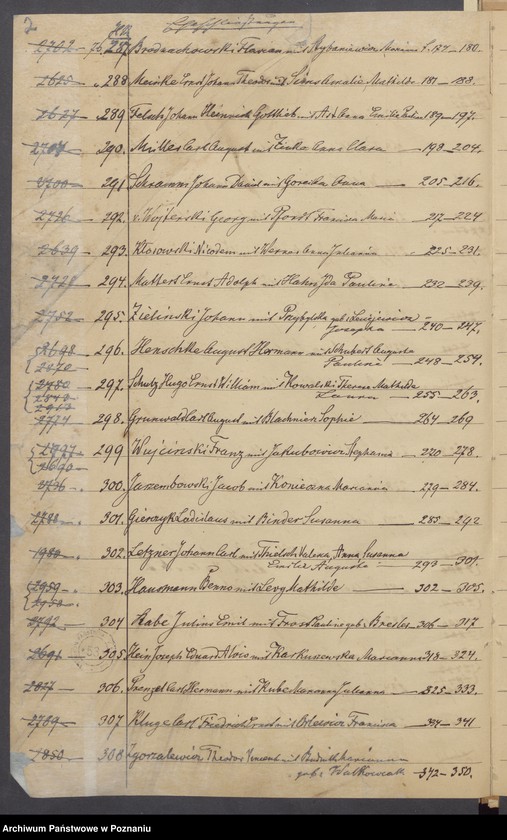 2 Eheschließungen
2702 287 Brodzachowski Florian mit 174 — 180.
2625 288 Meinke Ernst Johann Theodor mit Mathilde 181 — 188.
2627 289 Felsch Johann Heinrich Gottlieb mit Ast Anna Emilie 189 — 197.
290. Müller Carl August mit Anna Clara — 198 — 204.
2700 291 Schramm Johann David mit Goreika Anna — 205 — 216.
2776 292. v. Wojterski Georg mit Francisca Maria 217 — 224
2639 293. Kłosowski Nicodem mit Werner Anna Julianna 225 — 231.
2721 294. Mattert Ernst Adolph mit Hahn Ida Pauline 232 — 239.
2752 295. Zieliński Johann mit Przybylska geb. Josepha — 240 — 247.
2698 2672 296. Henschke August Hermann mit Schubert Augusta Pauline — 248 — 254.
297. Schulz Hugo Ernst William mit Kowalski Therese Mathilde Laura 255 — 263.
2774 298. Grunwald Carl August mit Sophie — 264 — 269
2727 2690 299 Wujciński Franz mit Jakubowicz Stephania — 270 — 278.
2736 300. Jazembowski Jacob mit Konieczna Marianna — 279 — 284.
2788 301. Gierzyk Ladislaus mit Binder Susanna — 285 — 292
302. Letzner Johann Carl mit Valeria Anna Susanna Emilie Augusta — 293 — 301.
2959 2950 303. Hausmann Benno mit Levy Mathilde — 302 — 305.
2742 304 Rabe Julius Emil mit Frost Pauline geb. Bresler 306 — 317
2691 305 Hein Joseph Eduard Alois mit Karkuszewska Marianna 318 — 324.
2827 306. Prenzel Carl Hermann mit Kube Marianna Julianna — 325 — 333.
2769 307 Kluge Carl Friedrich Ernst mit Orlewicz Francisca — 334 — 341
2850 308 Zgorzalewicz Theodor Vincent mit Marianna geb. Walkowiak — 342 — 350.
Archiwum Państwowe w Poznaniu
szukajwarchiwach.gov.pl